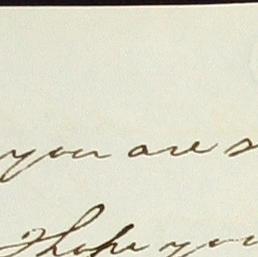 you are
I hope you